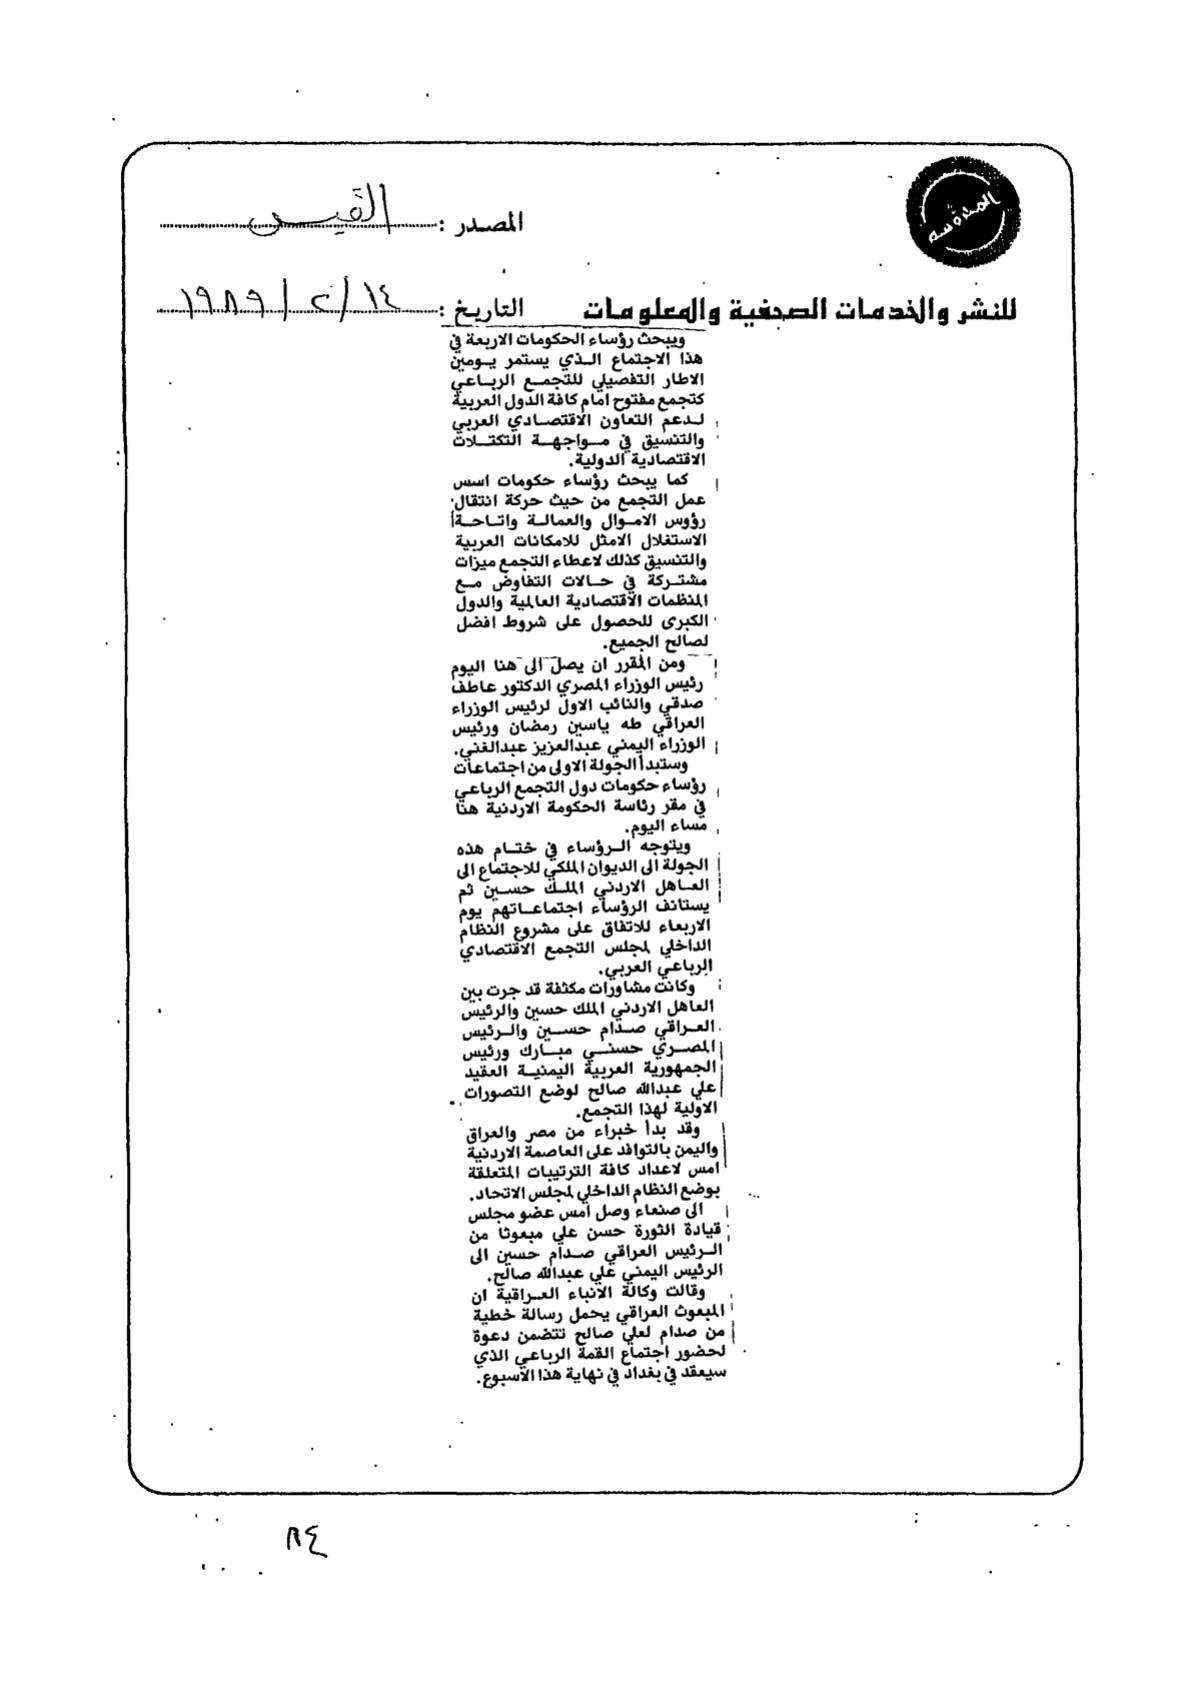 المصدر : القبس
للنشر والخدمات الصحفية والمعلومات
التاريخ : ١٤/٢/١٩٨٩
ويبحث رؤساء الحكومات الاربعة في
هذا الاجتماع الذي يستمر يومين
الاطار التفصيلي للتجمع الرباعي
كتجمع مفتوح امام كافة الدول العربية
لدعم التعاون الاقتصادي العربي
والتنسيق في مواجهة التكتلات
الاقتصادية الدولية.
كما يبحث رؤساء حكومات اسس
عمل التجمع من حيث حركة انتقال
رؤوس الاموال والعمالة واتاحة
الاستغلال الامثل للامكانات العربية
والتنسيق كذلك لاعطاء التجمع ميزات
مشتركة في حالات التفاوض مع
المنظمات الاقتصادية العالمية والدول
الكبرى للحصول على شروط افضل
لصالح الجميع.
ومن المقرر ان يصل الى هنا اليوم
رئيس الوزراء المصري الدكتور عاطف
صدقي والنائب الاول لرئيس الوزراء
العراقي طه ياسين رمضان ورئيس
الوزراء اليمني عبدالعزيز عبدالغني.
وستبدأ الجولة الاولى من اجتماعات
رؤساء حكومات دول التجمع الرباعي
في مقر رئاسة الحكومة الاردنية هنا
مساء اليوم.
ويتوجه الرؤساء في ختام هذه
الجولة الى الديوان الملكي للاجتماع الى
العاهل الاردني الملك حسين ثم
يستانف الرؤساء اجتماعاتهم يوم
الاربعاء للاتفاق على مشروع النظام
الداخلي لمجلس التجمع الاقتصادي
الرباعي العربي.
وكانت مشاورات مكثفة قد جرت بين
العاهل الاردني الملك حسين والرئيس
العراقي صدام حسين والرئيس
المصري حسني مبارك ورئيس
الجمهورية العربية اليمنية العقيد
علي عبدالله صالح لوضع التصورات
الاولية لهذا التجمع.
وقد بدأ خبراء من مصر والعراق
واليمن بالتوافد على العاصمة الاردنية
امس لاعداد كافة الترتيبات المتعلقة
بوضع النظام الداخلي لمجلس الاتحاد.
الى صنعاء وصل امس عضو مجلس
قيادة الثورة حسن علي مبعوثا من
الرئيس العراقي صدام حسين الى
الرئيس اليمني علي عبدالله صالح.
وقالت وكالة الانباء العراقية ان
المبعوث العراقي يحمل رسالة خطية
من صدام لعلي صالح تتضمن دعوة
لحضور اجتماع القمة الرباعي الذي
سيعقد في بغداد في نهاية هذا الاسبوع.
٨٤